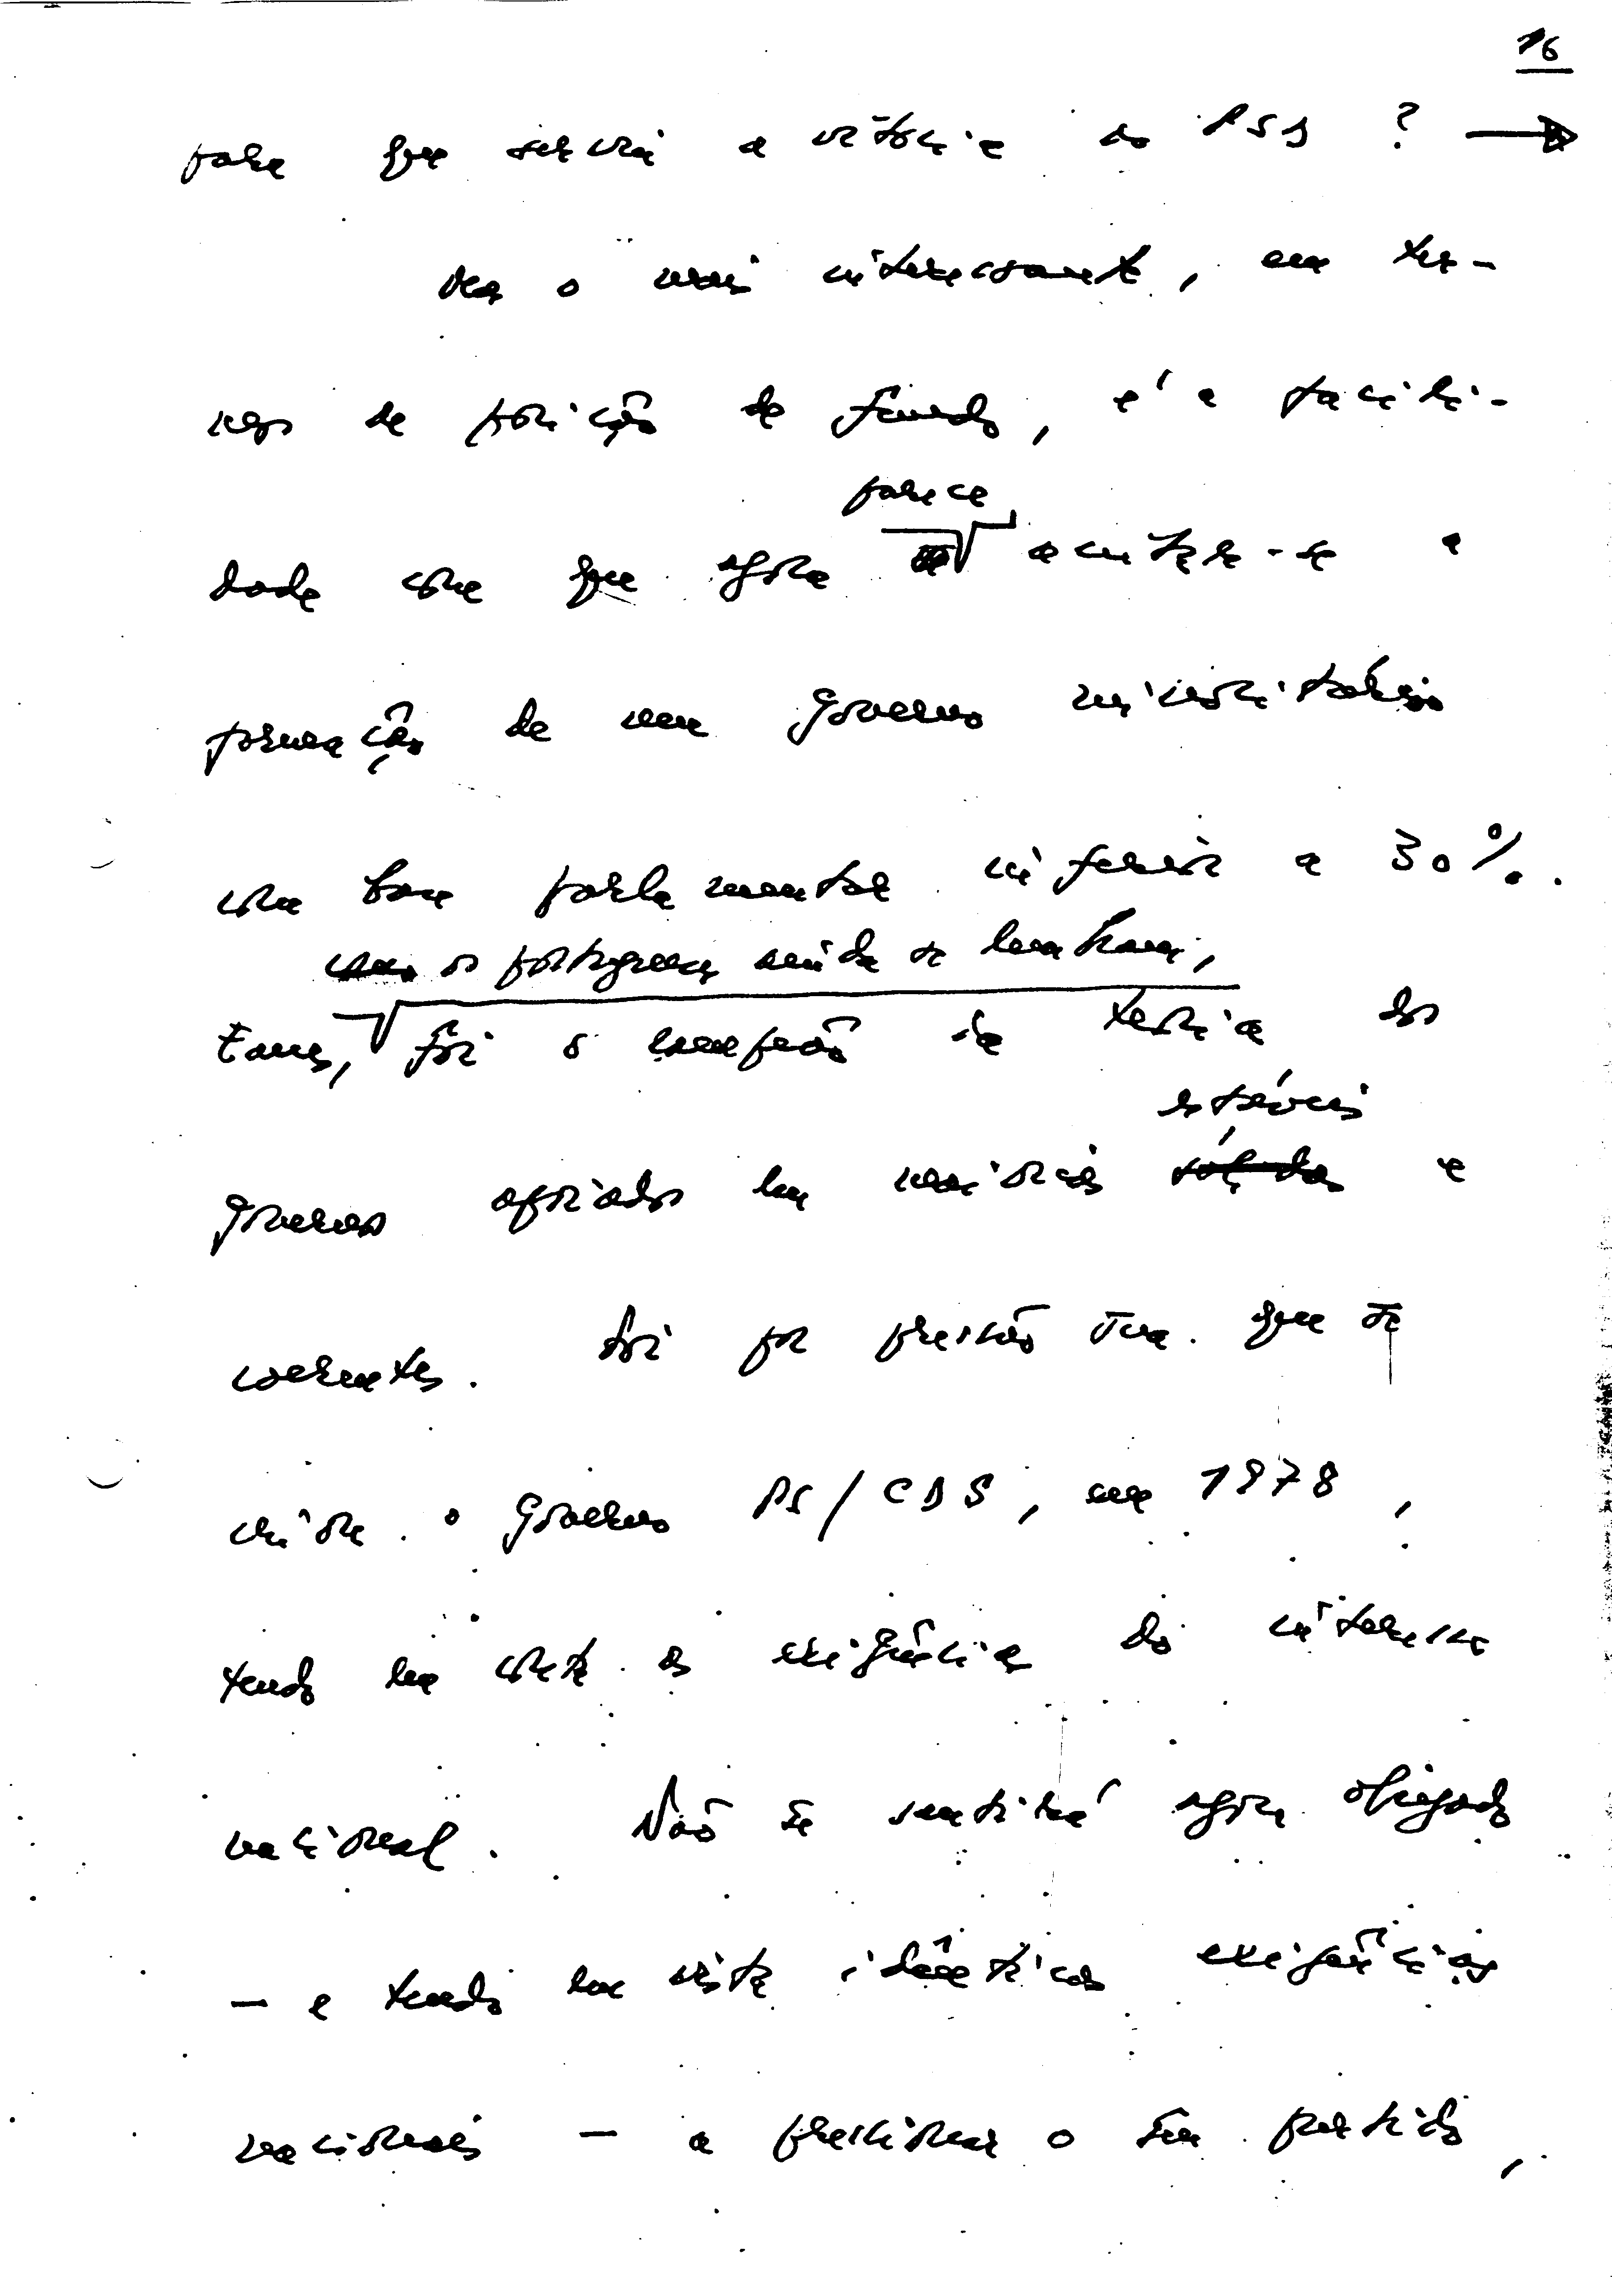 16
para que servia a vitória do PSD ? →
Mas o mais interessante, em ter-
mos de posição de fundo, é a facili-
dade com que agora parece aceitar-se a
formação de um Governo minoritário
com base parlamentar inferior a 30%.
Eanes, os portugueses ainda se lembram,
foi o campeão da teoria dos
Governos apoiados em maiorias estáveis e
coerentes. Foi por pressão sua que se
criou o Governo PS/CDS, em 1978,
tendo em conta as exigências do interesse
nacional. Não se sentirá agora obrigado
– e tendo em vista idênticas exigências
nacionais – a pressionar o seu partido,